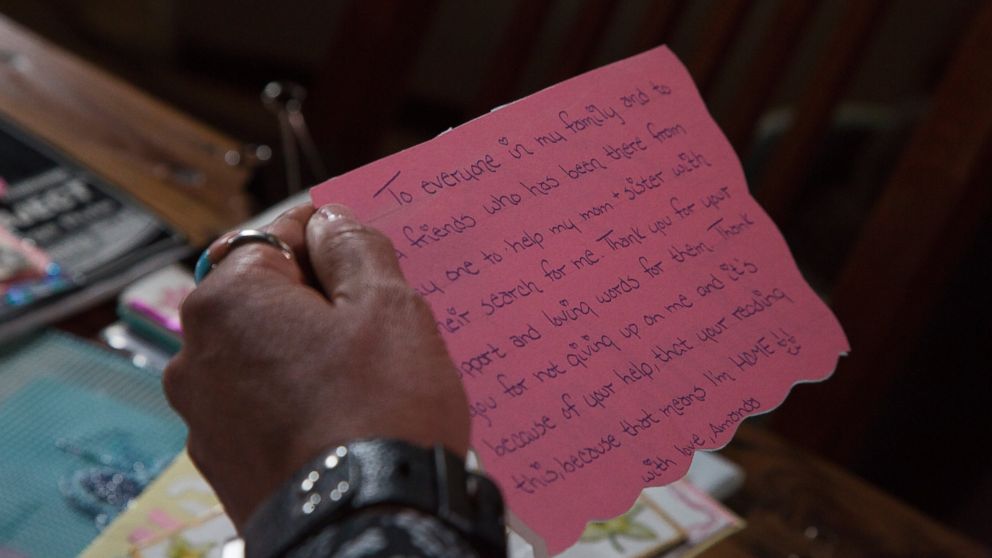 To everyone in my family and to
friends who has been there from
one to help my mom + sister with
their search for me. Thank you for your
support and loving words for them. Thank
you for not giving up on me and it's
because of your help, that your reading
this, because that means I'm HOME
with love, Amanda